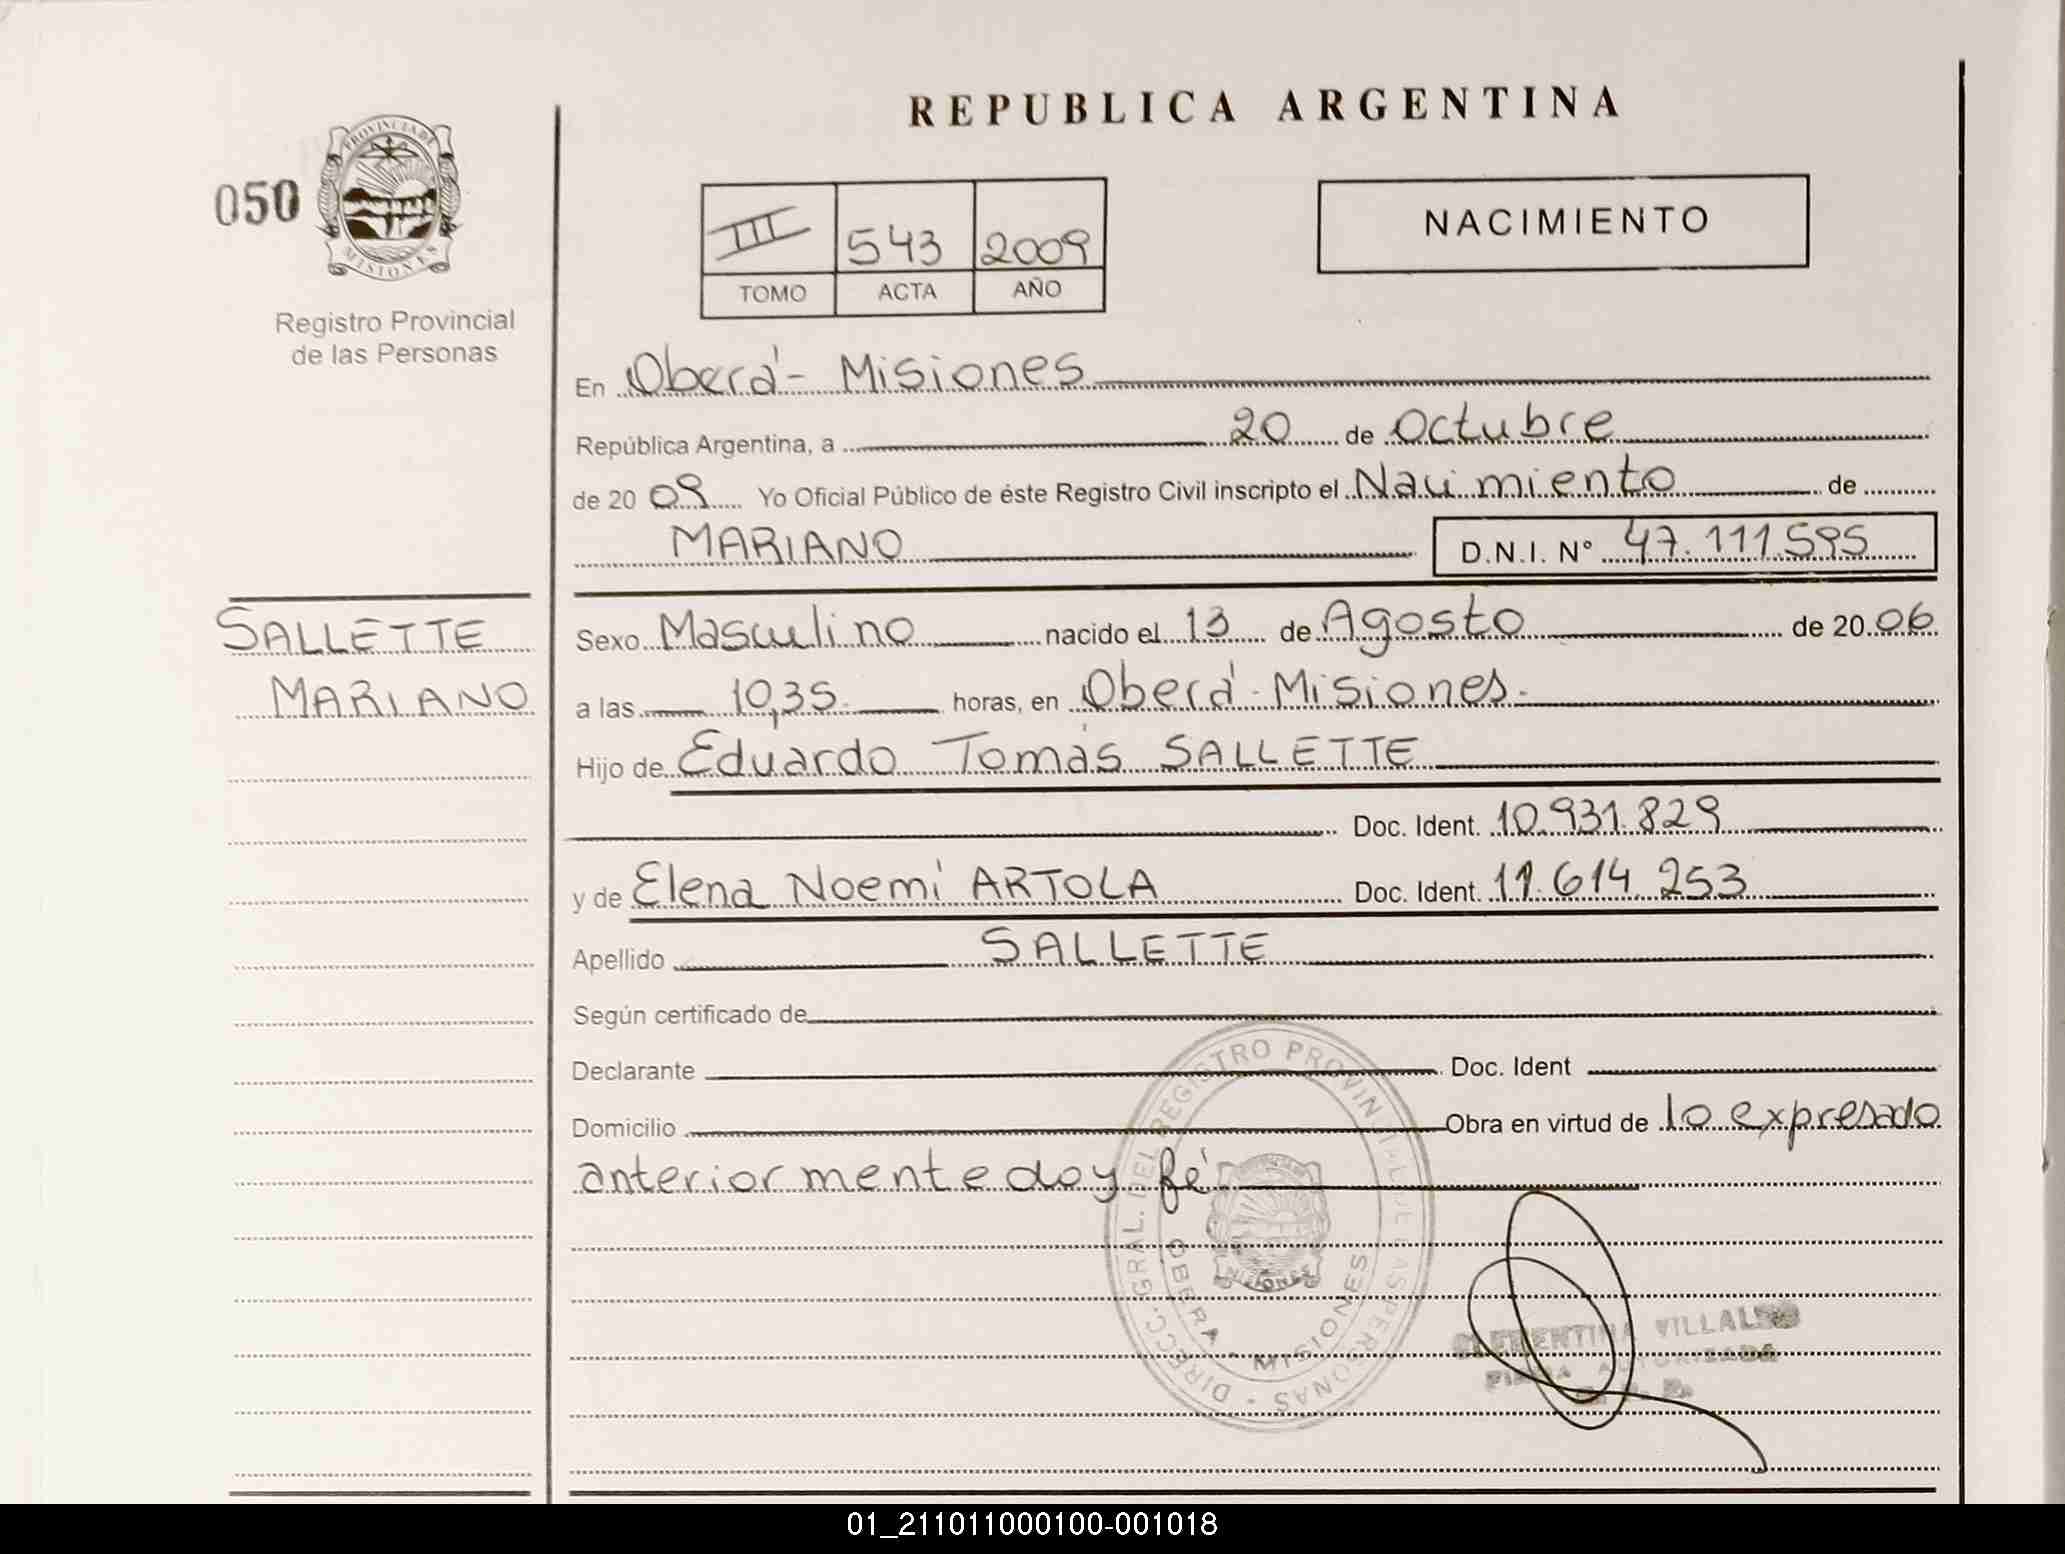 REPUBLICA ARGENTINA
050
PROVINCIA DE
MISIONES
Registro Provincial
de las Personas
III 543 2009
TOMO ACTA AÑO
NACIMIENTO
En Oberá - Misiones
República Argentina, a 20 de Octubre
de 20 09 Yo Oficial Público de éste Registro Civil inscripto el Nacimiento de
MARIANO D.N.I. N° 47.111.595
SALLETTE
MARIANO
Sexo Masculino nacido el 13 de Agosto de 20 06
a las 10,35 horas, en Oberá - Misiones.
Hijo de Eduardo Tomás SALLETTE
Doc. Ident. 10.931.829
y de Elena Noemí ARTOLA Doc. Ident. 11.614.253
Apellido SALLETTE
Según certificado de
Declarante Doc. Ident
Domicilio Obra en virtud de lo expresado
anteriormente doy fé
DIRECC. GRAL. DEL REGISTRO PROVINCIAL DE LAS PERSONAS
OBERA - MISIONES
MISIONES
CLEMENTINA VILLALBO
FIRMA AUTORIZADA
01_211011000100-001018